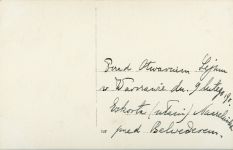 Przed Otwarciem Sejmu
w Warszawie dn. 9 lutego 19
Eskorta (ułani) Marszałka
przed Belwederem.